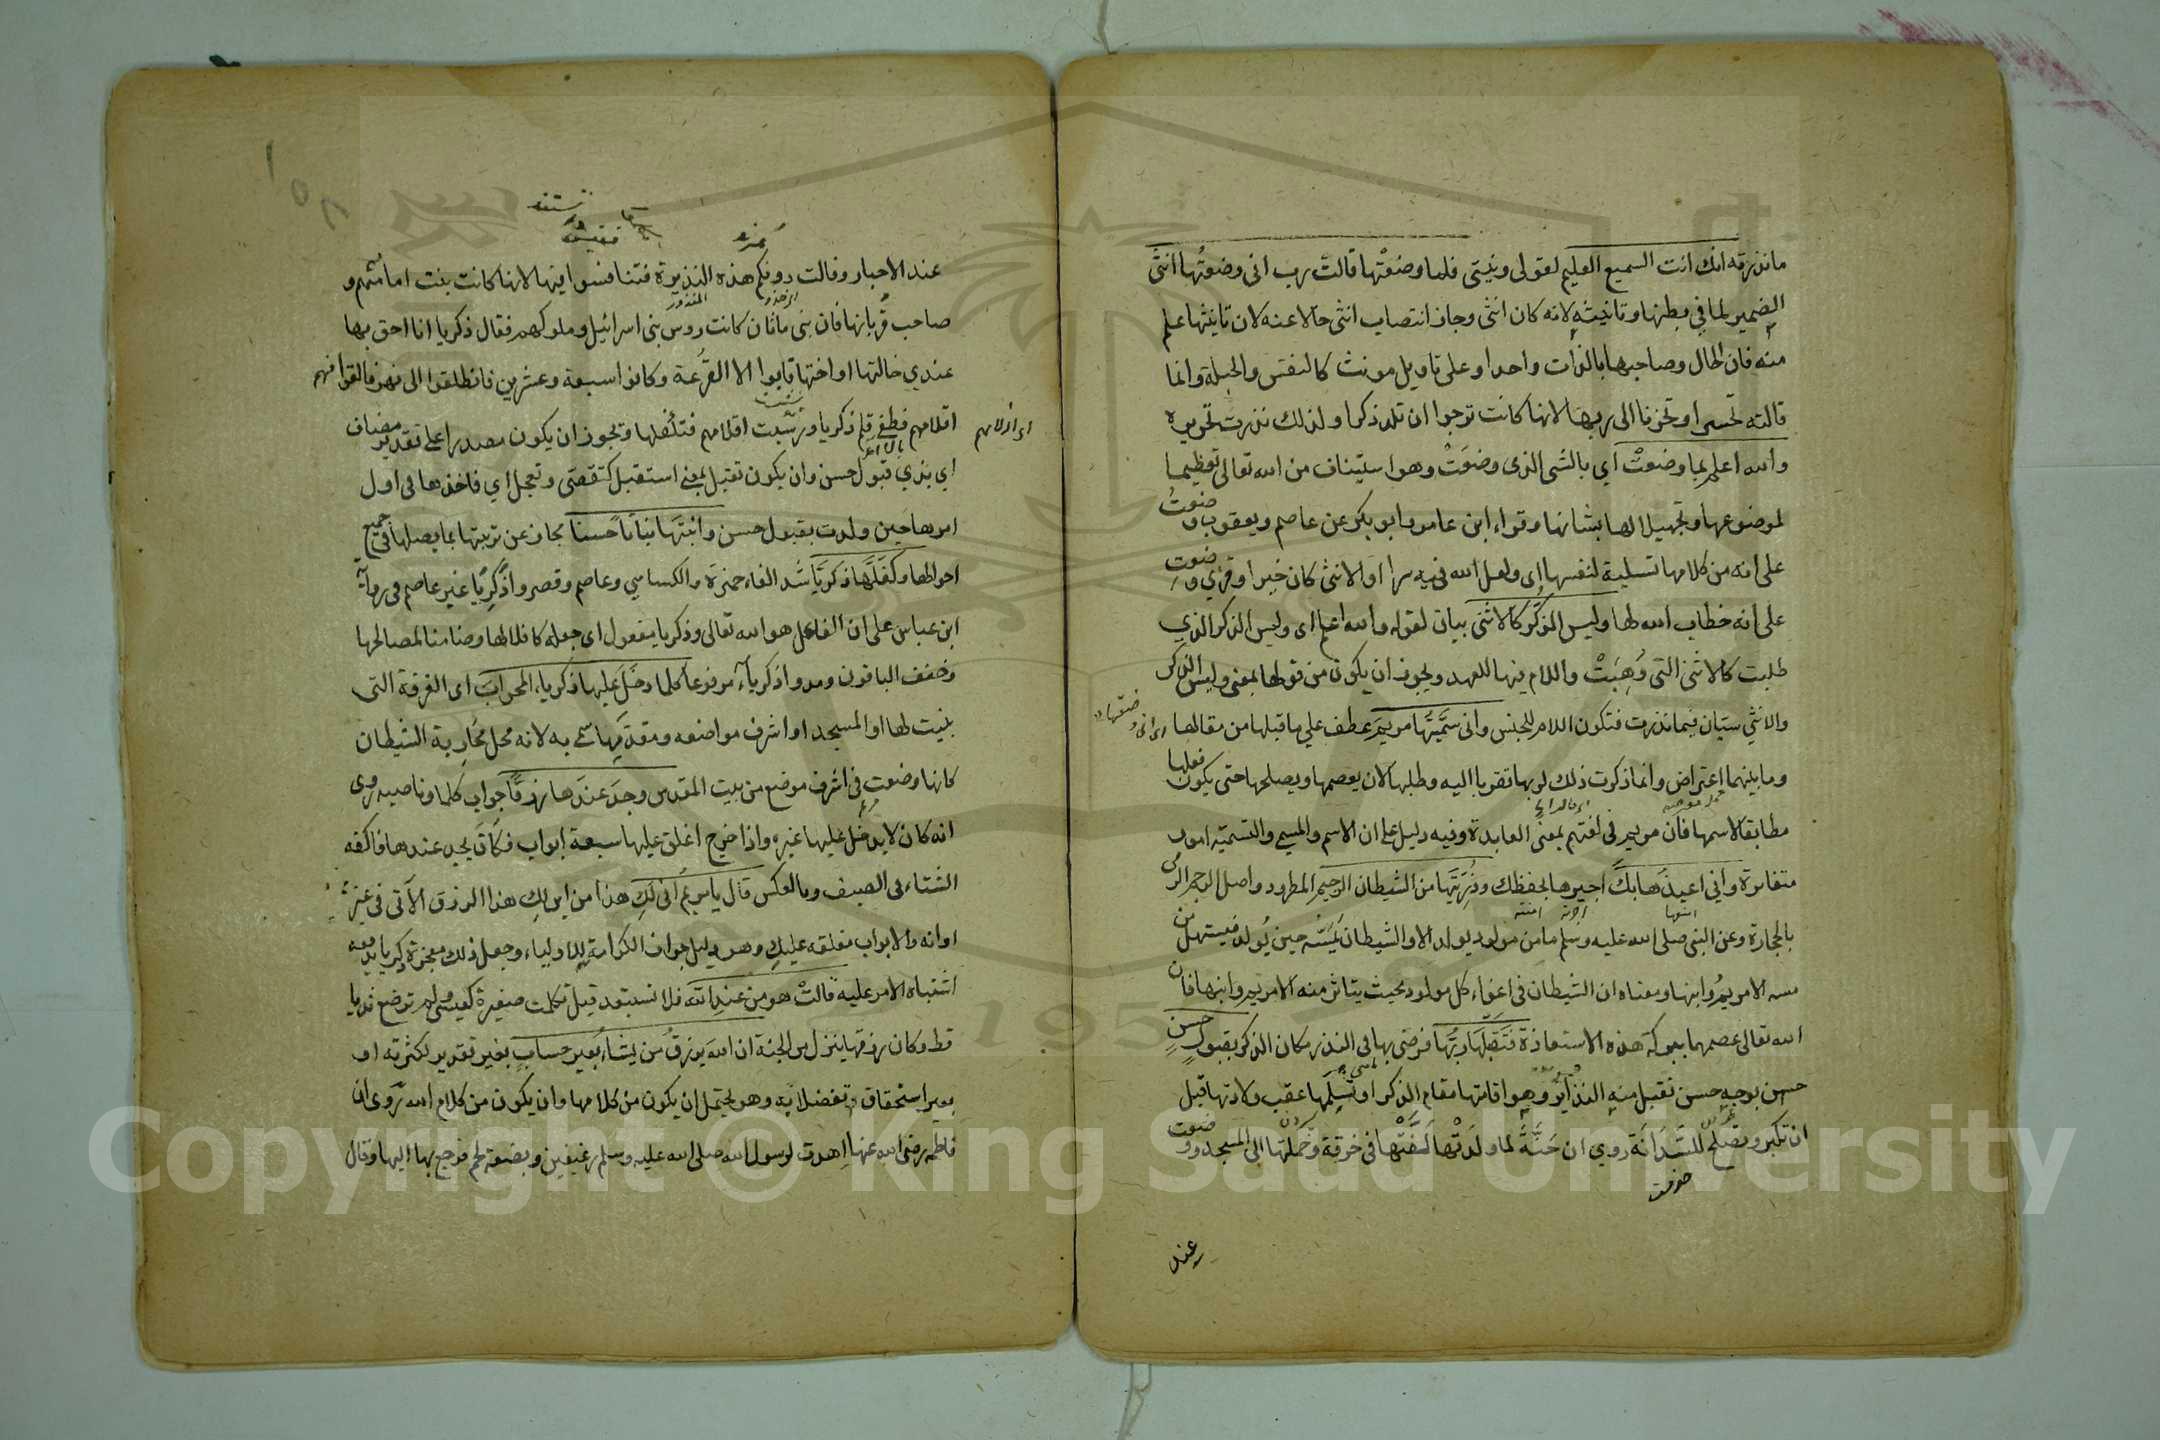 ما نذرته انك انت السميع العليم لقولي ونيتي فلما وضعتها قالت رب اني وضعتها انثى
الضمير لما في بطنها وتانيثه لانه كان انثى وجاز انتصاب انثى حالا عنه لان تانيثها علم
منه فان الحال وصاحبها بالذات واحد او على تاويل مونث كالنفس والحبلة وانما
قالته تحسرا وتحزنا الى ربها لانها كانت ترجوا ان تلد ذكرا ولذلك نذرت تحريره
والله اعلم بما وضعت اي بالشي الذي وضعت وهو استيناف من الله تعالى تعظيما
لموضوعها وتجهيلا لها بشانها وقراء ابن عامر وابو بكر عن عاصم ويعقوب وضعتُ
على انه من كلامها تسلية لنفسها اي ولعل الله فيه سرا او الانثى كان خيرا وقرئ وضعتِ
على انه خطاب الله لها وليس الذكر كالانثى بيان لقوله والله اعلم اي وليس الذكر الذي
طلبت كالانثى التي وُهِبَتْ واللام فيها للعهد ويجوز ان يكون من قولها بمعنى وليس الذكر
والانثى سيان فيما نذرت فتكون اللام للجنس واني سمَّيتُها مريم عطف على ما قبلها من مقالها
اي اني وضعتها
وما بينهما اعتراض وانما ذكرت ذلك لربها تقربا اليه وطلبها لان يعصمها ويصلحها حتى يكون فعلها
مطابقا لاسمها فان مريم في لغتهم بمعنى العابدة وفيه دليل على ان الاسم والمسمى والتسمية امور
متغايرة واني اعيذُها بك اجيرها بحفظك وذُرِّيَّتها من الشيطان الرجيم المطرود واصل الرجم الرمي
بالحجارة وعن النبي صلى الله عليه وسلم ما من مولود يولد الا والشيطان يَمَسُّه حين يُولد فيستهل من
مسه الا مريم وابنها ومعناه ان الشيطان في اغواء كل مولود بحيث يتاثر منه الا مريم وابنها فان
الله تعالى عصمهما ببركة هذه الاستعاذة فتقبلها ربُّها فرضي بها في النذر مكان الذكر بقبولٍ حسنٍ
حسن بوجه حسن تقبل منه النذاير وهو اقامتها مقام الذكر او تسلمها عقب ولادتها قبل
ان تكبر وتصلح للسَّدَانَة روي ان حَنَّةَ لما ولدتها لفَّتْها في خرقة وحَمَلتها الى المسجد ووضعت
عند
عند الاحبار وقالت دونكم هذه النذيرة فتنافسوا فيها لانها كانت بنت امامهم و
المنذور
صاحب قُربانها فان بني ماثان كانت روس بني اسرائيل وملوكهم فقال زكريا انا احق بها
عندي خالتها او اختها فابوا الا القُرعة وكانوا سبعة وعشرين فانطلقوا الى نهر فالقوا فيهم
اقلامهم فطفي قلم زكريا ورسبت اقلامهم فتكفلها ويجوز ان يكون مصدرا على تقدير مضاف
اي بذي قبول حسن وان يكون تقبل بمعنى استقبل كتقصى وتعجل اي فاخذها في اول
امرها حين ولدت بقبول حسن وانبتها نباتا حسنا مجاز عن تربيتها بما يصلها في جميع
احوالها وكفَّلها زكريا شدد الفاء حمزة والكساسي وعاصم وقصروا زكريا غير عاصم في رواية
ابن عباس على ان الفاعل هو الله تعالى وزكريا مفعول اي جعله كافلا لها وضامنا لمصالحها
وخفف الباقون ومدوا زكرياء مرفوعا كلما دخَلَ عليها زكرياء المحرابَ اى الغرفة التى
بنيت لها او المسجد او اشرف مواضعه ومقدّمِها سمي به لانه محل محاربة الشيطان
كانها وضعت في اشرف موضع من بيت المقدس وجدَ عندَها رزقًا جواب كلما وناصبه روى
انه كان لا يدخل عليها غيره واذا خرج اغلق عليها سبعة ابواب فكان يجد عندها فاكهة
الشتاء في الصيف وبالعكس قال يا مريم انى لكِ هذا من اين لكِ هذا الرزق الآتي في غير
اوانه والابواب مغلقه عليكِ وهو دليل جواز الكرامة للاولياء وجعل ذلك معجزة زكريا يدفعه
اشتباه الامر عليه قالتْ هو من عندِ الله فلا تستبعد قيل تكلمت صغيرة كعيسى ولم ترضع ثديا
قط وكان رزقها ينزل من الجنة ان الله يرزق من يشاء بغير حساب بغير تقدير لكثرته او
بغير استحقاق تفضلا به وهو يحتمل ان يكون من كلامها وان يكون من كلام الله روى ان
فاطمه رضي الله عنها اهدت لرسول الله صلى الله عليه وسلم رغيفين وبضعة لحم فرجع بها اليها وقال